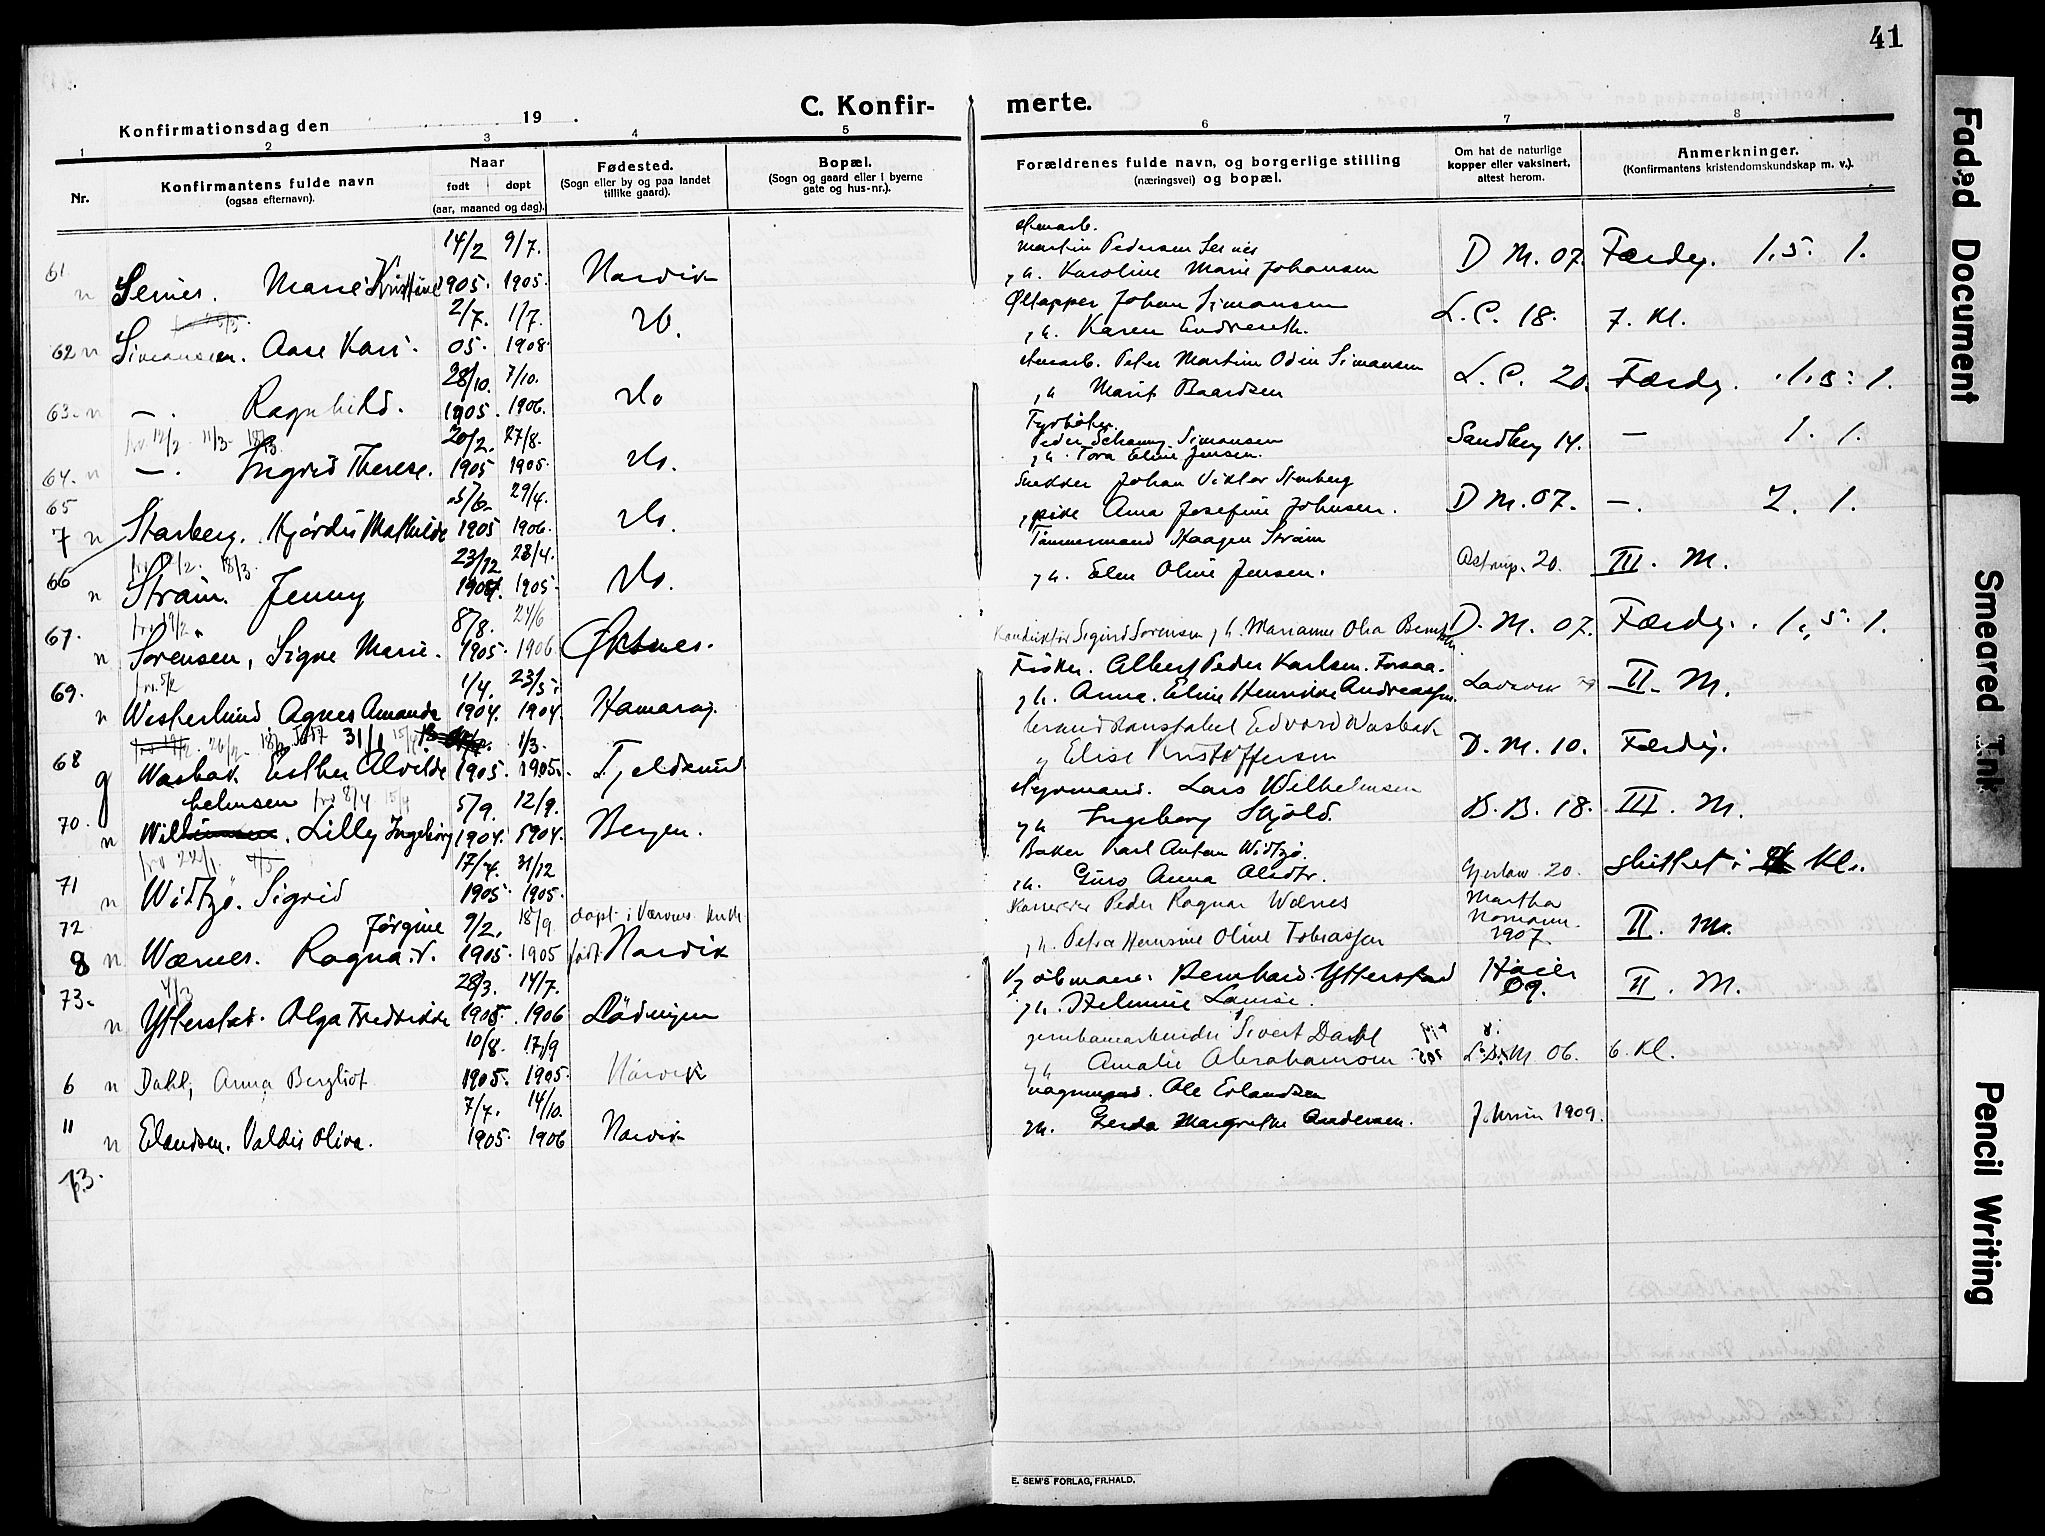 41
C. Konfirmerte.
Konfirmationsdag den 19
1 2 3 4 5 6 7 8
Nr.
Konfirmantens fulde navn
(ogsaa efternavn).
Naar
født døpt
(aar, maaned og dag).
Fødested.
(Sogn eller by og paa landet
tillike gaard).
Bopæl.
(Sogn og gaard eller i byerne
gate og hus-nr.).
Forældrenes fulde navn, og borgerlige stilling
(næringsvei) og bopæl.
Om hat de naturlige
kopper eller vaksinert,
attest herom.
Anmerkninger.
(Konfirmantens kristendomskundskap m. v.).
14/2 9/7.
61 n Marie Kristine 1905. 1905. Narvik
Martin Pedersen
Karoline Marie Johansen D M. 07. Færdig. 1,5. 1.
2/7. 1/7.
62 n Simonsen. Aase Kari. 05. 1908. do.
Øltapper Johan Simonsen
Karen L. C. 18. 7. Kl.
28/10. 7/10.
63. n —. Ragnhild. 1905. 1906. do
Peter Martin Odin Simonsen
Marit Baardsen L. C. 20. Færdig. 1,5. 1.
12/2 11/3
20/2. 27/8.
64. n —. Ingrid Therese. 1905 1905. do.
Fyrbøter
Peder Simonsen
Tora Eline Jensen. Sandberg 14. — 1. 1.
65
5/6 29/4.
7 n Hjørdis Mathilde 1905 1906. do.
Snekker Johan Viktor Stenberg
pike Anna Josefine Johnsen. D M. 07. —. 2. 1.
23/12 28/4.
66 n Strøm. Jenny 1904. 1905. do.
Tømmermand Haagen Strøm
Elen Oline Jensen. Astrup. 20. III. M.
8/8. 24/6
67. n Sørensen, Signe Marie. 1905. 1906 Øksnes.
Konduktør Sigurd Sørensen D. M. 07. Færdig. 1,5. 1.
1/4. 23/5.
69. n Westerlund Agnes Amanda 1904. 1904. Hamarøy.
Fisker. Albert Peder Karlsen. Forsaa.
Anna. Eline Henrikke Andreassen. II. M.
31/1 1/3.
68 g Wasbak Esther Alvilde 1905. 1905. Fjeldsund
brandkonstabel Edvard Wasbak
Elise Kristoffersen D. M. 10. Færdig.
helmsen
5/9. 12/9.
70. n Wil Lilly Ingeborg 1904. 1904. Bergen.
Styrmand. Lars Wilhelmsen
Ingeborg Skjold. B. B. 18. III. M.
17/7. 31/12
71 n Widtzø. Sigrid 1905. 1905.
Baker Karl Anton Widtzø.
Guro Anna Gjerløw 20. sluttet i Kl.
72 Jørgine 9/2. 18/9 døpt i
8 n Wærnes. Ragna. 1905. 1905 født Narvik
Kasserer Peder Ragnar Wærnes
Petra Hermine Oline Tobiassen
Martha
Normann.
1907. II. M.
4/3 28/3. 14/7.
73. n Ytterstad. Olga Fredrikke 1905. 1906 Lødingen
Bernhard. Ytterstad
Helmine Lovise. Høier
09. II. M.
10/8. 17/9
6 n Dahl, Anna Bergliot 1905. 1905. Narvik
Sivert Dahl
Amalie Abrahamsen M 06. 6. Kl.
7/7. 14/10.
11 n Erlandsen. Valdis Oliva. 1905. 1906 Narvik
vognmand. Ole Erlandsen
Gerda Margrethe Andersen. 1909.
73.
E. SEM'S FORLAG, FR.HALD.
Faded Document
Smeared Ink
Pencil Writing